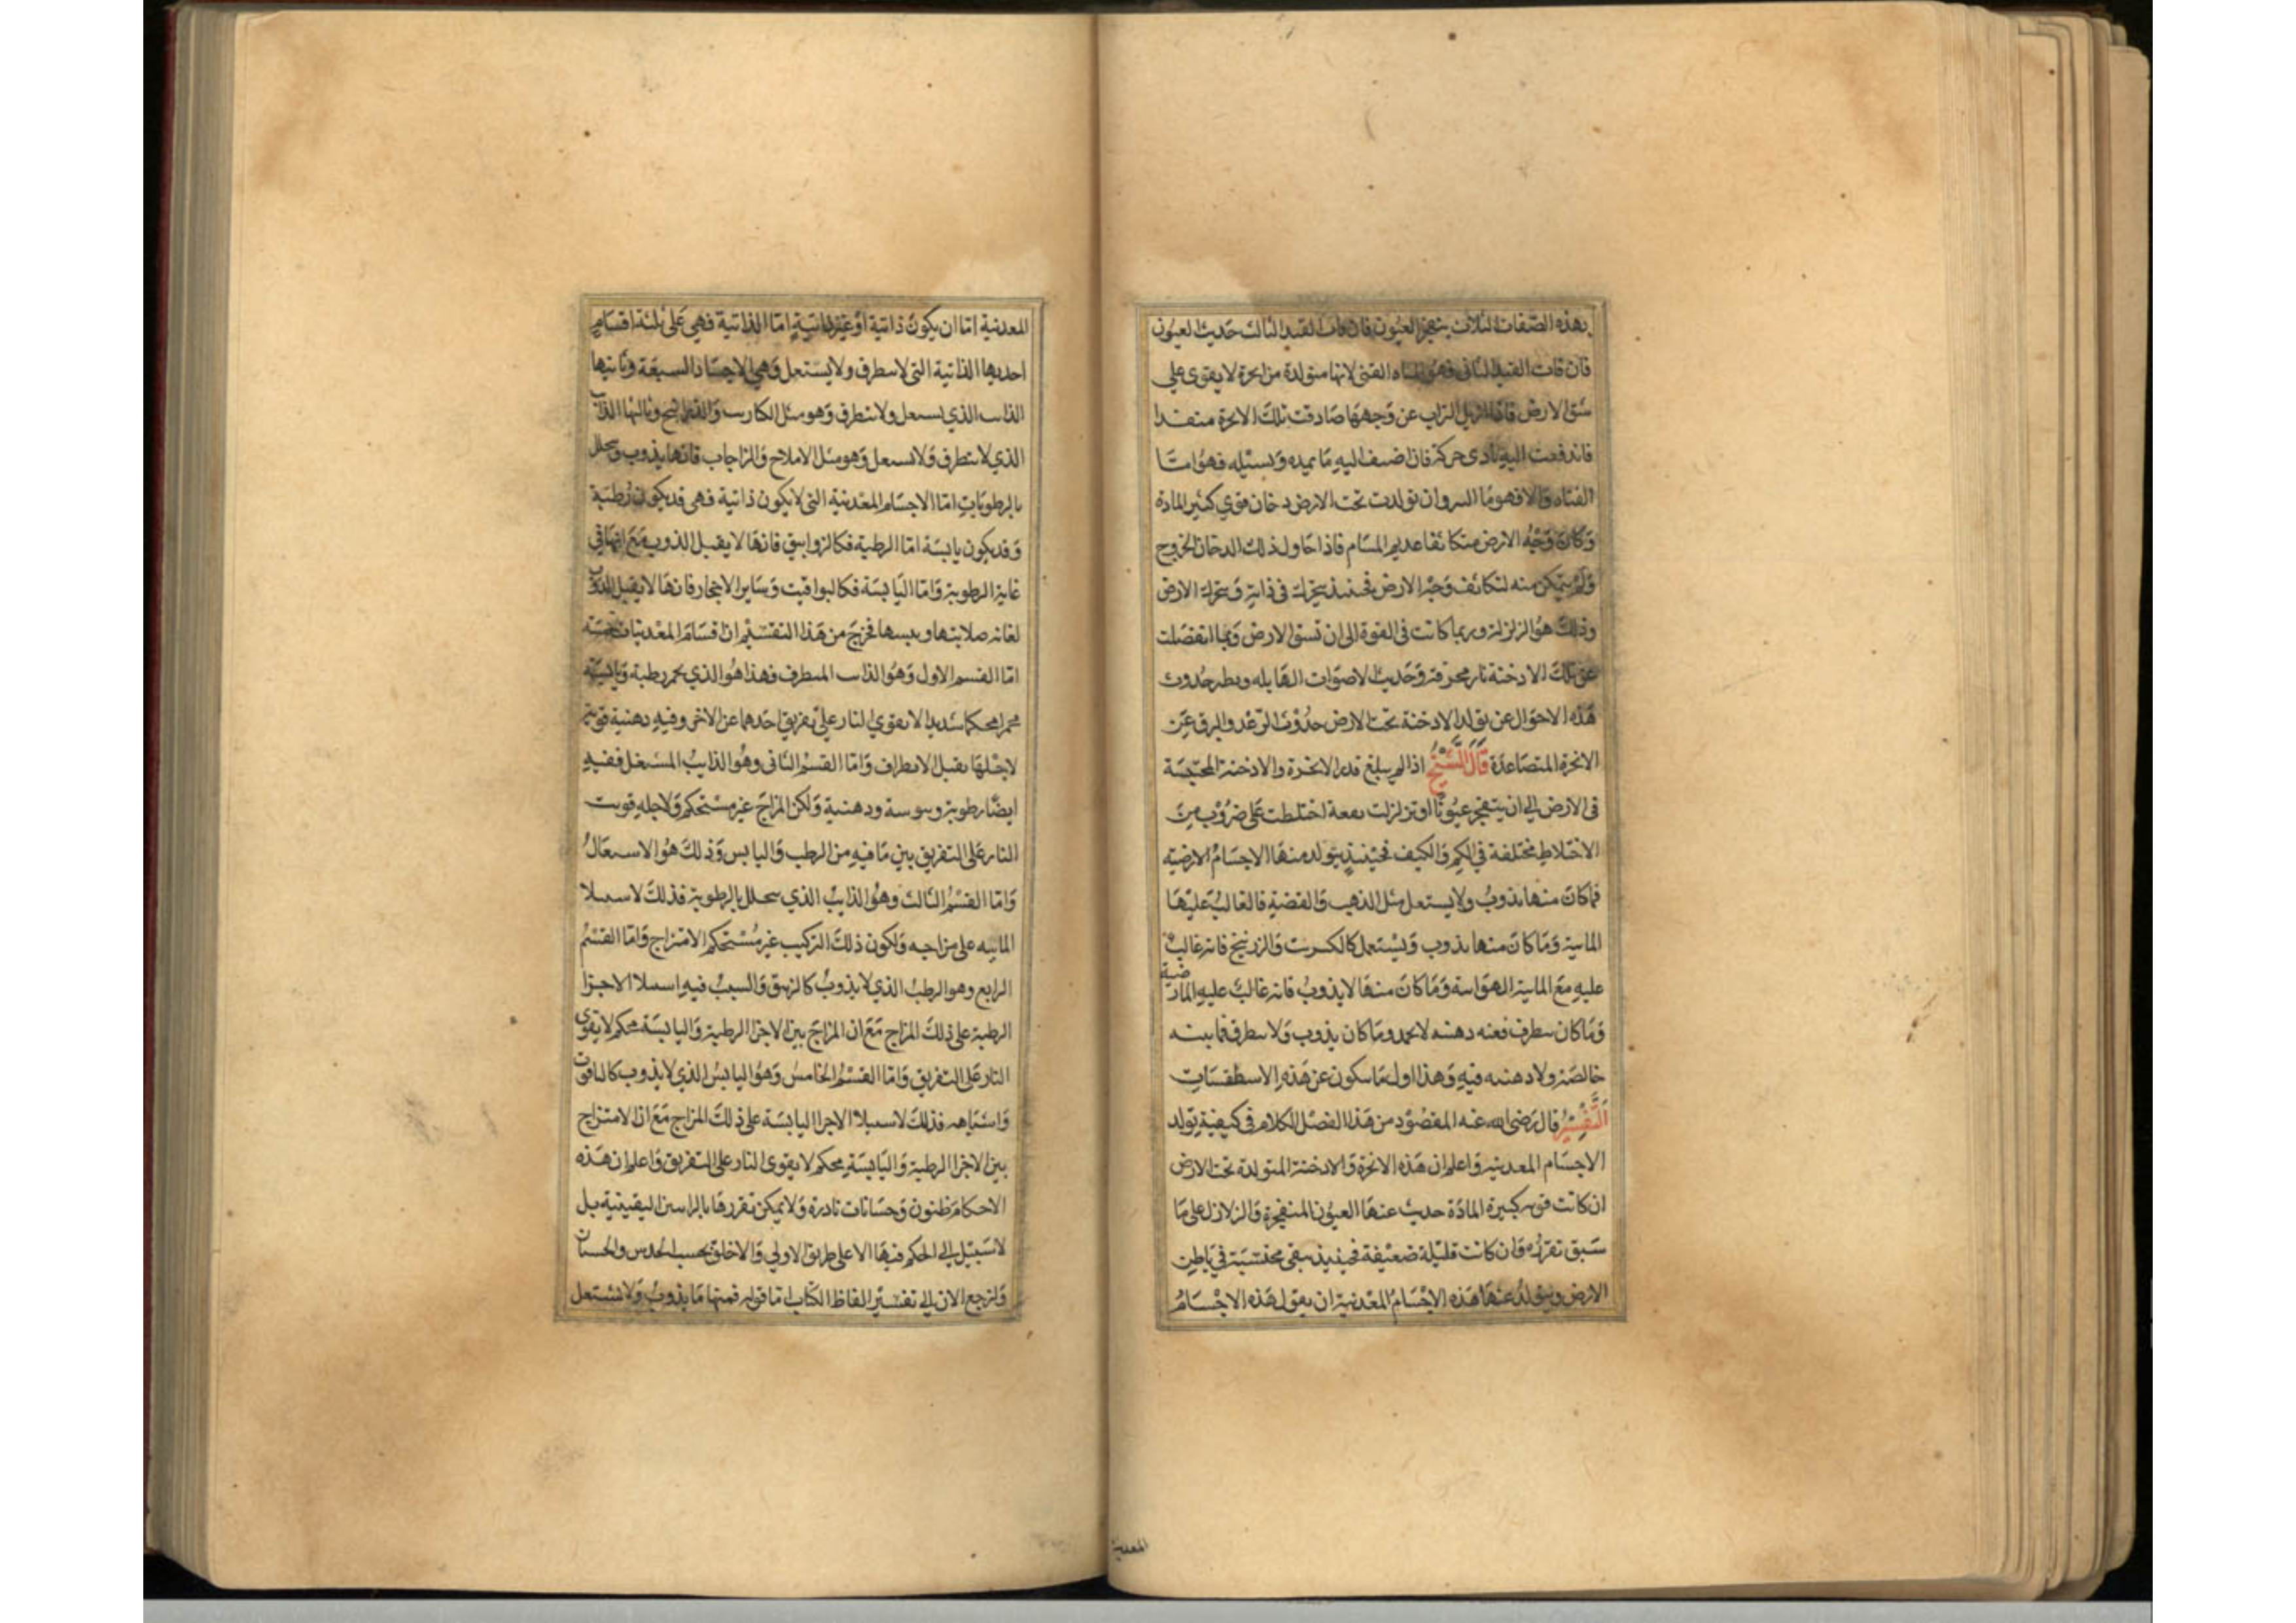 بهذه الصفات الثلاث ينفجر العيون فان فات القيد الثالث حديث العيون
فان فات القيد الثانى فهو المياه القنى لانها متولدة من ابخرة لا يقوى على
شق الارض فاذا ازيل التراب عن وجهها صادفت تلك الابخرة منفدا
فاندفعت اليه بادى حركة فان اضيف اليه ما يمده ويسيله فهو اما
القناه والا فهو ما البير وان تولدت تحت الارض دخان قوي كثير المادة
وكان وجه الارض متكاثفا عديم المسام فاذا حاول ذلك الدخان الخروج
ولم يتمكن منه لتكاثف وجه الارض فحينئذ يتحرك في ذاته وتحرك الارض
وذلك هو الزلزلة وربما كانت في القوة الى ان تشق الارض وربما انفصلت
عن تلك الادخنة نار محرقة وحديث الاصوات الهايله ونظير حدوث
هذه الاحوال عن تولد الادخنة تحت الارض حدوث الرعد والبرق عن
الابخرة المتصاعدة قال الشيخ اذا لم يبلغ قدر الابخرة والادخنة المحتبسة
فى الارض الى ان ينفجر عيونا او تزلزلت بقعة اختلطت على ضروب من
الاختلاط مختلفة في الكم والكيف فحينئذ يتولد منها الاجسام الارضية
فما كان منها يذوب ولا يستعل مثل الذهب والفضة فالغالب عليها
المايية وما كان منها يذوب ويشتعل كالكبريت والزرنيخ فانه غالب
عليه مع المايية الهوايية وما كان منها لا يذوب فانه غالب عليه الارضية
وما كان ينطرق فعنه دهنيه لا تجمد وما كان يذوب ولا ينطرق فماييته
خالصة ولا دهنيه فيه وهذا اول ما يتكون عن هذه الاسطقسات
التفسير قال رضى الله عنه المقصود من هذا الفصل الكلام فى كيفية تولد
الاجسام المعدنيه واعلم ان هذه الابخرة والادخنة المتولدة تحت الارض
ان كانت قويه كبيرة المادة حديث عنها العيون المنفجرة والزلازل على ما
سبق تقرره وان كانت قليلة ضعيفة فحينيذ يبقى محتسبة في باطن
الارض ويتولد عنها هذه الاجسام المعدنية ان يقول هذه الاجسام
المعدنية
المعدنية اما ان يكون ذائبة او غير ذائبة اما الذائبة فهي على ثلثة اقسام
احديها الذائبة التى لا ينطرق ولا يستعل وهي الاجساد السبعة وثانيها
الذايب الذي يستعل ولا ينطرق وهو مثل الكباريت والزرانيخ وثالثها الذايب
الذي لا ينطرق ولا يستعل وهو مثل الاملاح والزاجات فانها يذوب وتحلل
بالرطوبات اما الاجسام المعدنية التى لا يكون ذائبة فهى قد يكون رطبة
وقد يكون يابسة اما الرطبة فكالزوابيق فانها لا يقبل الذوب مع انها في
غاية الرطوبة واما اليابسة فكاليواقيت وساير الاحجار فانها لا يقبل الذوب
لغاية صلابتها ويبسها فخرج من هذا التقسيم ان اقسام المعدنيات خمسة
اما القسم الاول وهو الذايب المنطرق فهذا هو الذي يخمر رطبه ويابسه
خمرا محكما شديدا لا يقوي النار على تفريق احدهما عن الاخر وفيه دهنية قوية
لاجلها يقبل الانطراق واما القسم الثانى وهو الذايب المستعل ففيه
ايضا رطوبة ويبوسة ودهنية ولكن المزاج غير مستحكم ولاجله قويت
النار على التفريق بين ما فيه من الرطب واليابس وذلك هو الاستعال
واما القسم الثالث وهو الذايب الذي يتحلل بالرطوبة فذلك لاستيلا
الماييه على مزاجه ولكون ذلك التركيب غير مستحكم الامتزاج واما القسم
الرابع وهو الرطب الذي لا يذوب كالزيبق والسبب فيه استيلا الاجزا
الرطبة على ذلك المزاج مع ان المزاج بين الاجزا الرطبة واليابسة محكم لا يقوى
النار على التفريق واما القسم الخامس وهو اليابس الذي لا يذوب كالياقوت
واشباهه فذلك لاستيلا الاجزا اليابسة على ذلك المزاج مع ان الامتزاج
بين الاجزا الرطبة واليابسة محكم لا يقوى النار على التفريق واعلم ان هذه
الاحكام ظنون وحسبانات نادرة ولا يمكن تقررها بالبراهين اليقينية بل
لا سبيل الى الحكم فيها الا على طريق الاولي والاخلق بحسب الحدس والحسبان
ولنرجع الان الى تفسير الفاظ الكتاب اما قوله فمنها ما يذوب ولا يشتعل